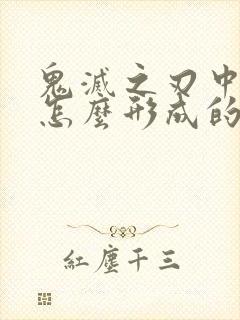 鬼滅之刃中
怎麼形成的
紅塵千三